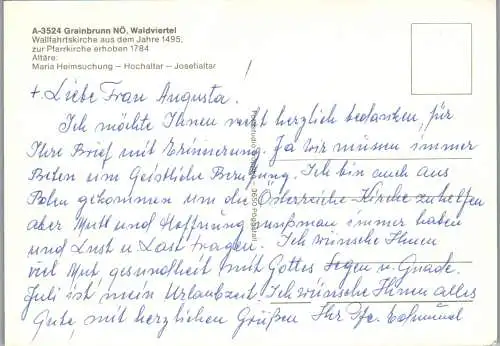 A-3524 Grainbrunn NÖ, Waldviertel
Wallfahrtskirche aus dem Jahre 1495,
zur Pfarrkirche erhoben 1784
Altäre:
Maria Heimsuchung – Hochaltar – Josefialtar
+ Liebe Frau Augusta!
Ich möchte Ihnen recht herzlich bedanken, für
Ihre Brief mit Erinnerung. Ja wir müssen immer
Beten um Geistliche Berufung. Ich bin auch aus
Polen gekommen um die Österreiche Kirche zu helfen
aber Mutt und Hoffnung muß man immer haben
und Lust u Last tragen. Ich wünsche Ihnen
viel Mut, gesundheit mit Gottes Segen u. Gnade.
Juli ist mein Urlaubszeit. Ich wünsche Ihnen alles
Gute, mit herzlichen Grüßen Ihr Pfr.